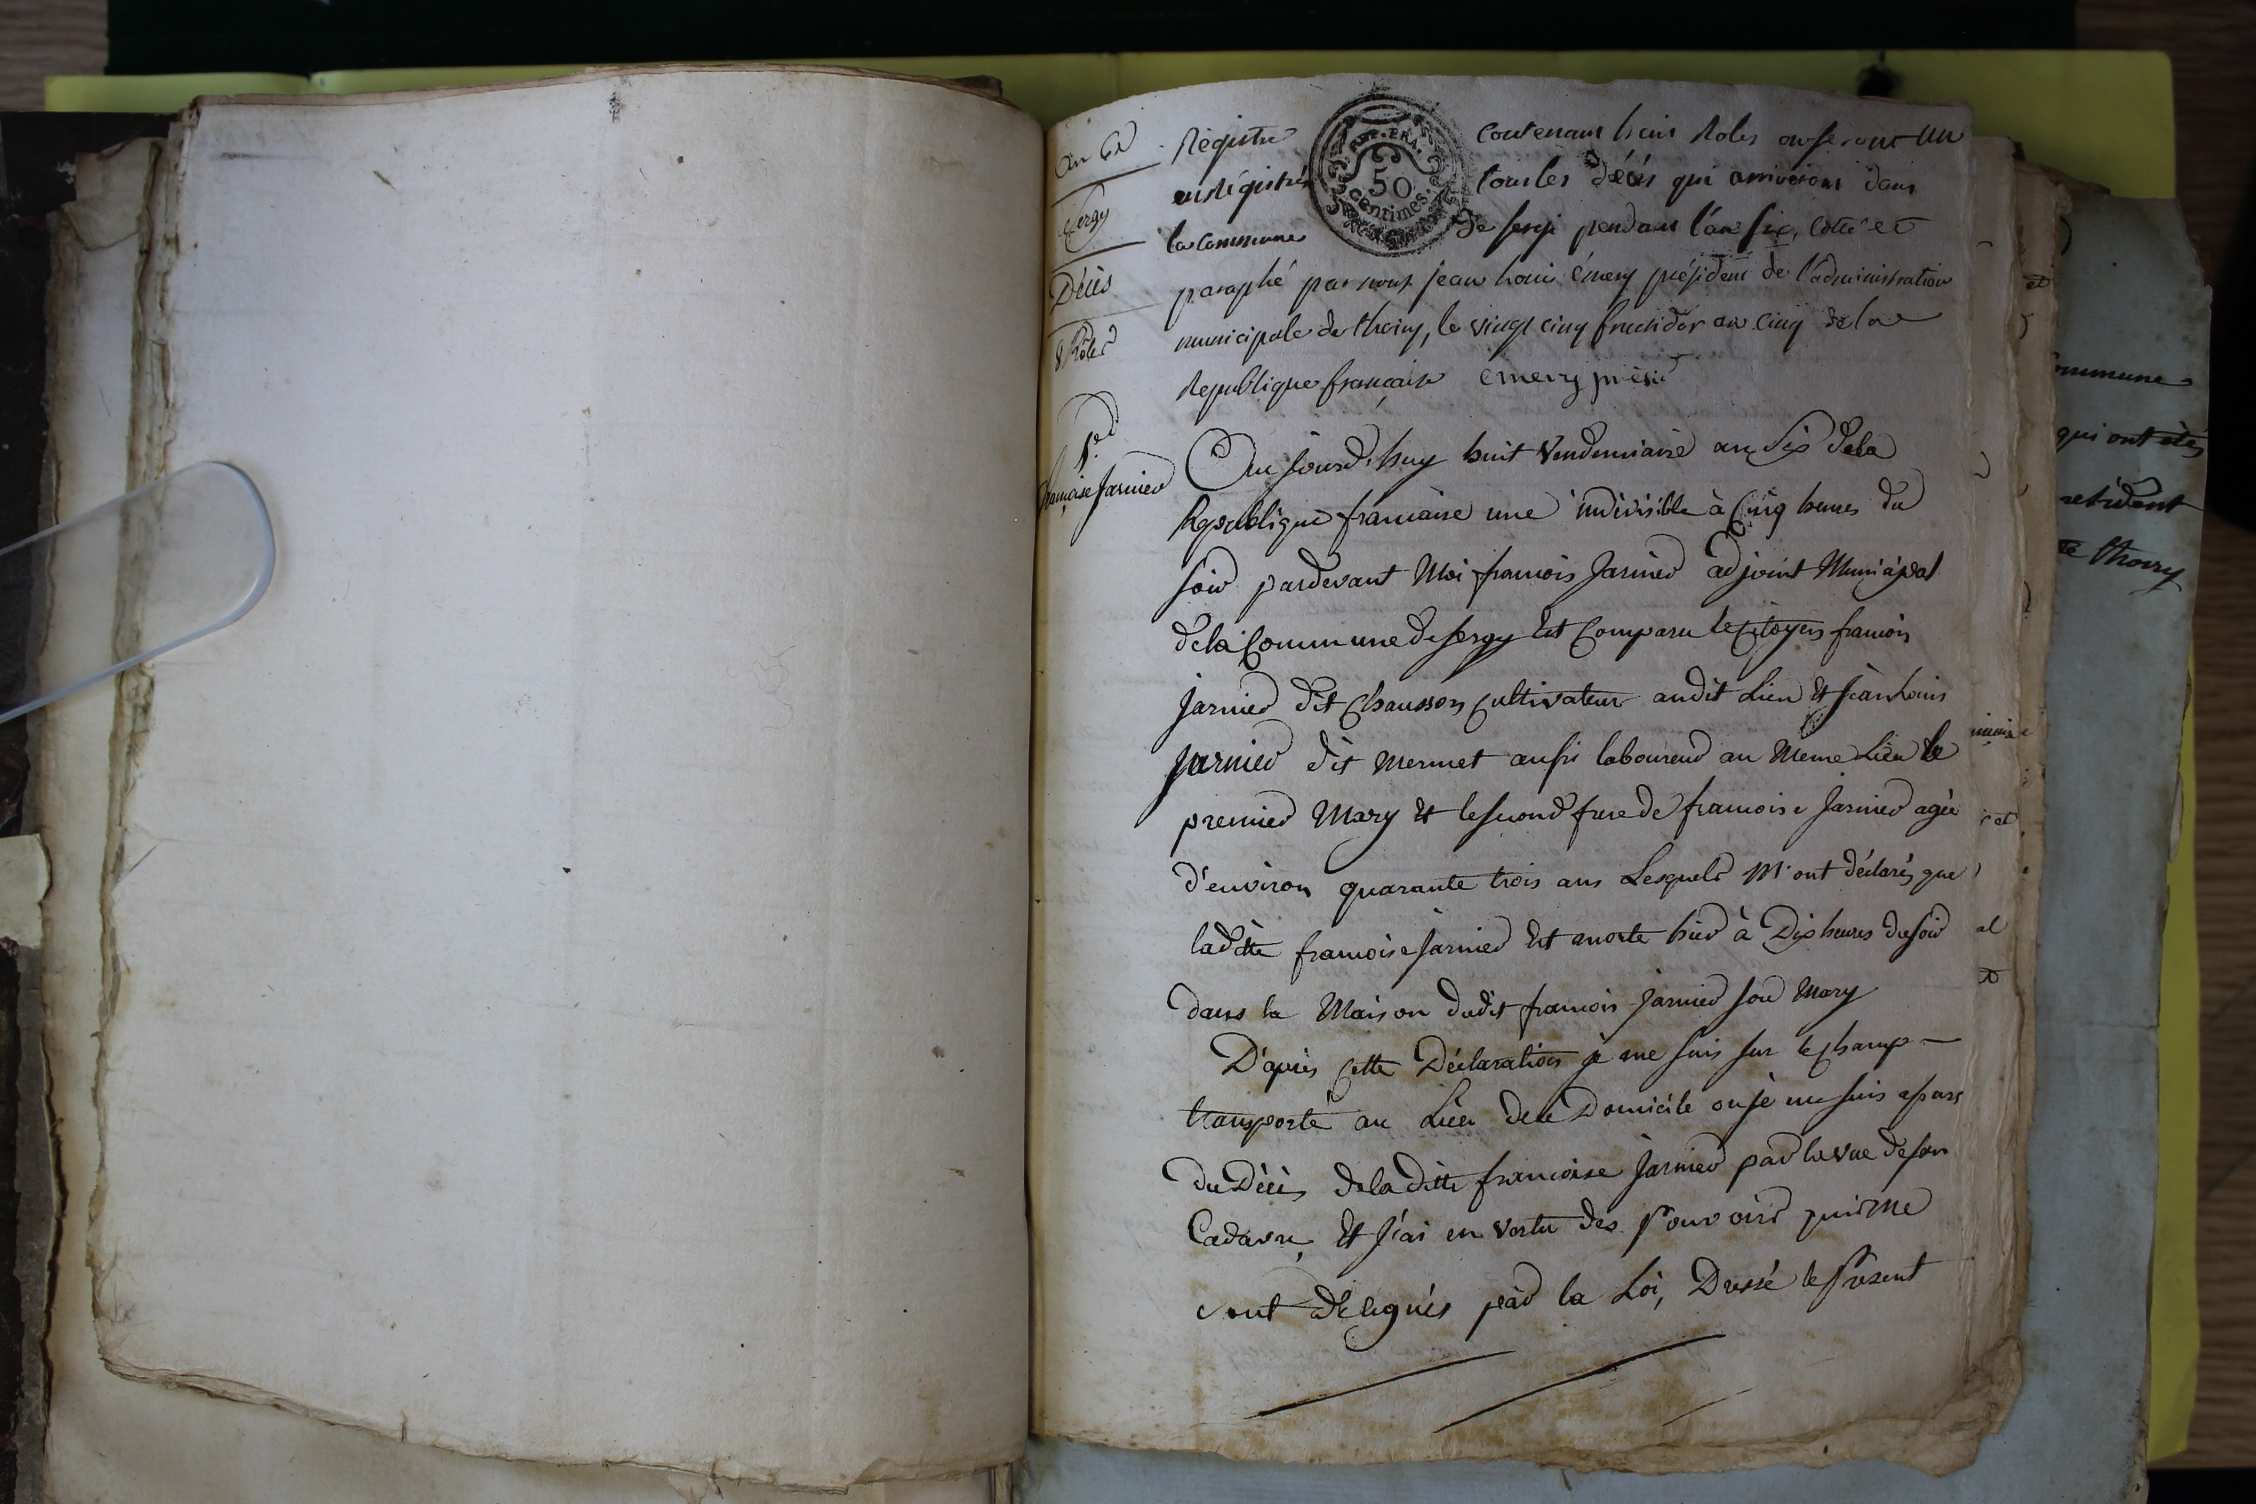 An 6e
Sergy
Décès
8 Rôles
1er
françoise Jarnier
REP. FRA.
50
centimes.
Registre contenant huit Roles ou seront un
enregistrés tous les décés qui arriveront dans
la commune de sergi pendant l'an six, cotté et
paraphé par nous jean Louis émery président de l'administration
municipale de thoiry, le vingt cinq fructidor an cinq de la
Republique française emery présid
Au jourd'huy huit Vendemiaire an Six dela
Republique francaise une indivisible à Cinq heures du
soir pardevant Moi francois Jarnier adjoint Municipal
dela Commune de sergy Est Comparu le Citoyen francois
jarnier dit Chausson Cultivateur audit Lieu Et Jean Louis
jarnier dit Mermet aussi laboureur au Meme Lieu le
premier Mary Et le second frere de francoise Jarnier agée
d'environ quarante trois ans Lesquels M'ont déclarés que
laditte francoise Jarnier Est morte hier à Dix heures du soir
dans la Maison dudit francois Jarnier son Mary
D'après Cette Déclaration je me suis sur le Champ
transporté au Lieu de ce Domicile ou je me suis assuré
du Décès de la ditte francoise Jarnier par la vue de son
Cadavre, Et J'ai en vertu des Pouvoirs qui me
sont délégués par la Loi, Dressé le Présent
ommune
qui ont étés
resident
de thoiry
et
al